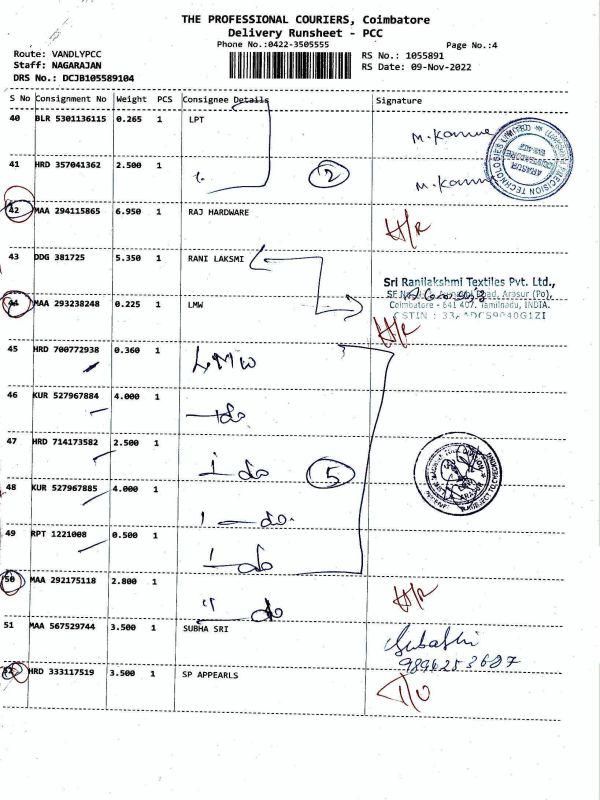 THE PROFESSIONAL COURIERS, Coimbatore
Delivery Runsheet - PCC
Phone No.:0422-3505555
Page No.:4
Route: VANDLYPCC
RS No.: 1055891
Staff: NAGARAJAN
RS Date: 09-Nov-2022
DRS No.: DCJB105589104
S No Consignment No Weight PCS Consignee Details Signature
40 BLR 5301136115 0.265 1 LPT
41 HRD 357041362 2.500 1
2
42 MAA 294115865 6.950 1 RAJ HARDWARE H/R
43 DDG 381725 5.350 1 RANI LAKSMI
Sri Ranilakshmi Textiles Pvt. Ltd.,
Road, Arasur (Po),
Coimbatore - 641 407. Tamilnadu, INDIA.
44 MAA 293238248 0.225 1 LMW H/R
45 HRD 700772938 0.360 1 LMW
46 KUR 527967884 4.000 1 do
47 HRD 714173582 2.500 1 do
5
48 KUR 527967885 4.000 1 do
49 RPT 1221008 0.500 1 do
50 MAA 292175118 2.800 1 do H/R
51 MAA 567529744 3.500 1 SUBHA SRI
HRD 333117519 3.500 1 SP APPEARLS